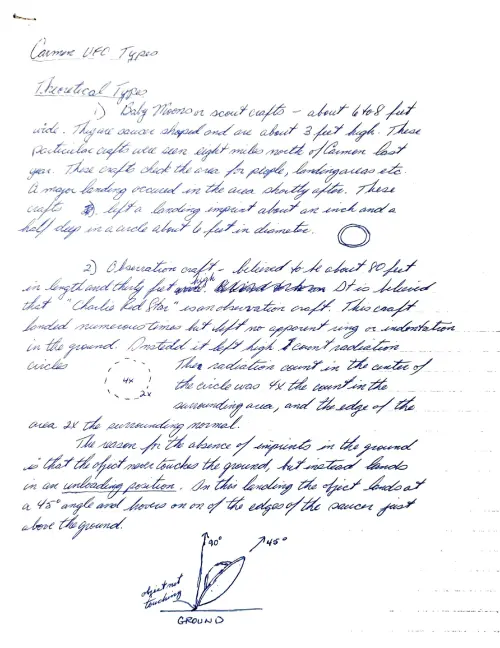 Carmen UFO Types
Theoretical Types
1) Baby Moons or scout crafts - about 6 to 8 feet
wide. They are saucer shaped and are about 3 feet high. These
particular crafts were seen eight miles north of Carmen last
year. These crafts check the area for people, landing areas etc.
A major landing occured in the area shortly after. These
crafts left a landing imprint about an inch and a
half deep in a circle about 6 feet in diameter.
2) Observation craft - believed to be about 80 feet
in length and thirty feet high. It is believed
that "Charlie Red Star" is an observation craft. This craft
landed numerous times but left no apparent ring or indentation
in the ground. Instead it left high count radiation
circles
The radiation count in the center of
4x
the circle was 4x the count in the
2x
surrounding area, and the edge of the
area 2x the surrounding normal.
The reason for the absence of imprints in the ground
is that the object never touches the ground, but instead lands
in an unloading position. In this landing the object lands at
a 45° angle and hovers on on of the edges of the saucer just
above the ground.
90°
45°
object not
touching
GROUND